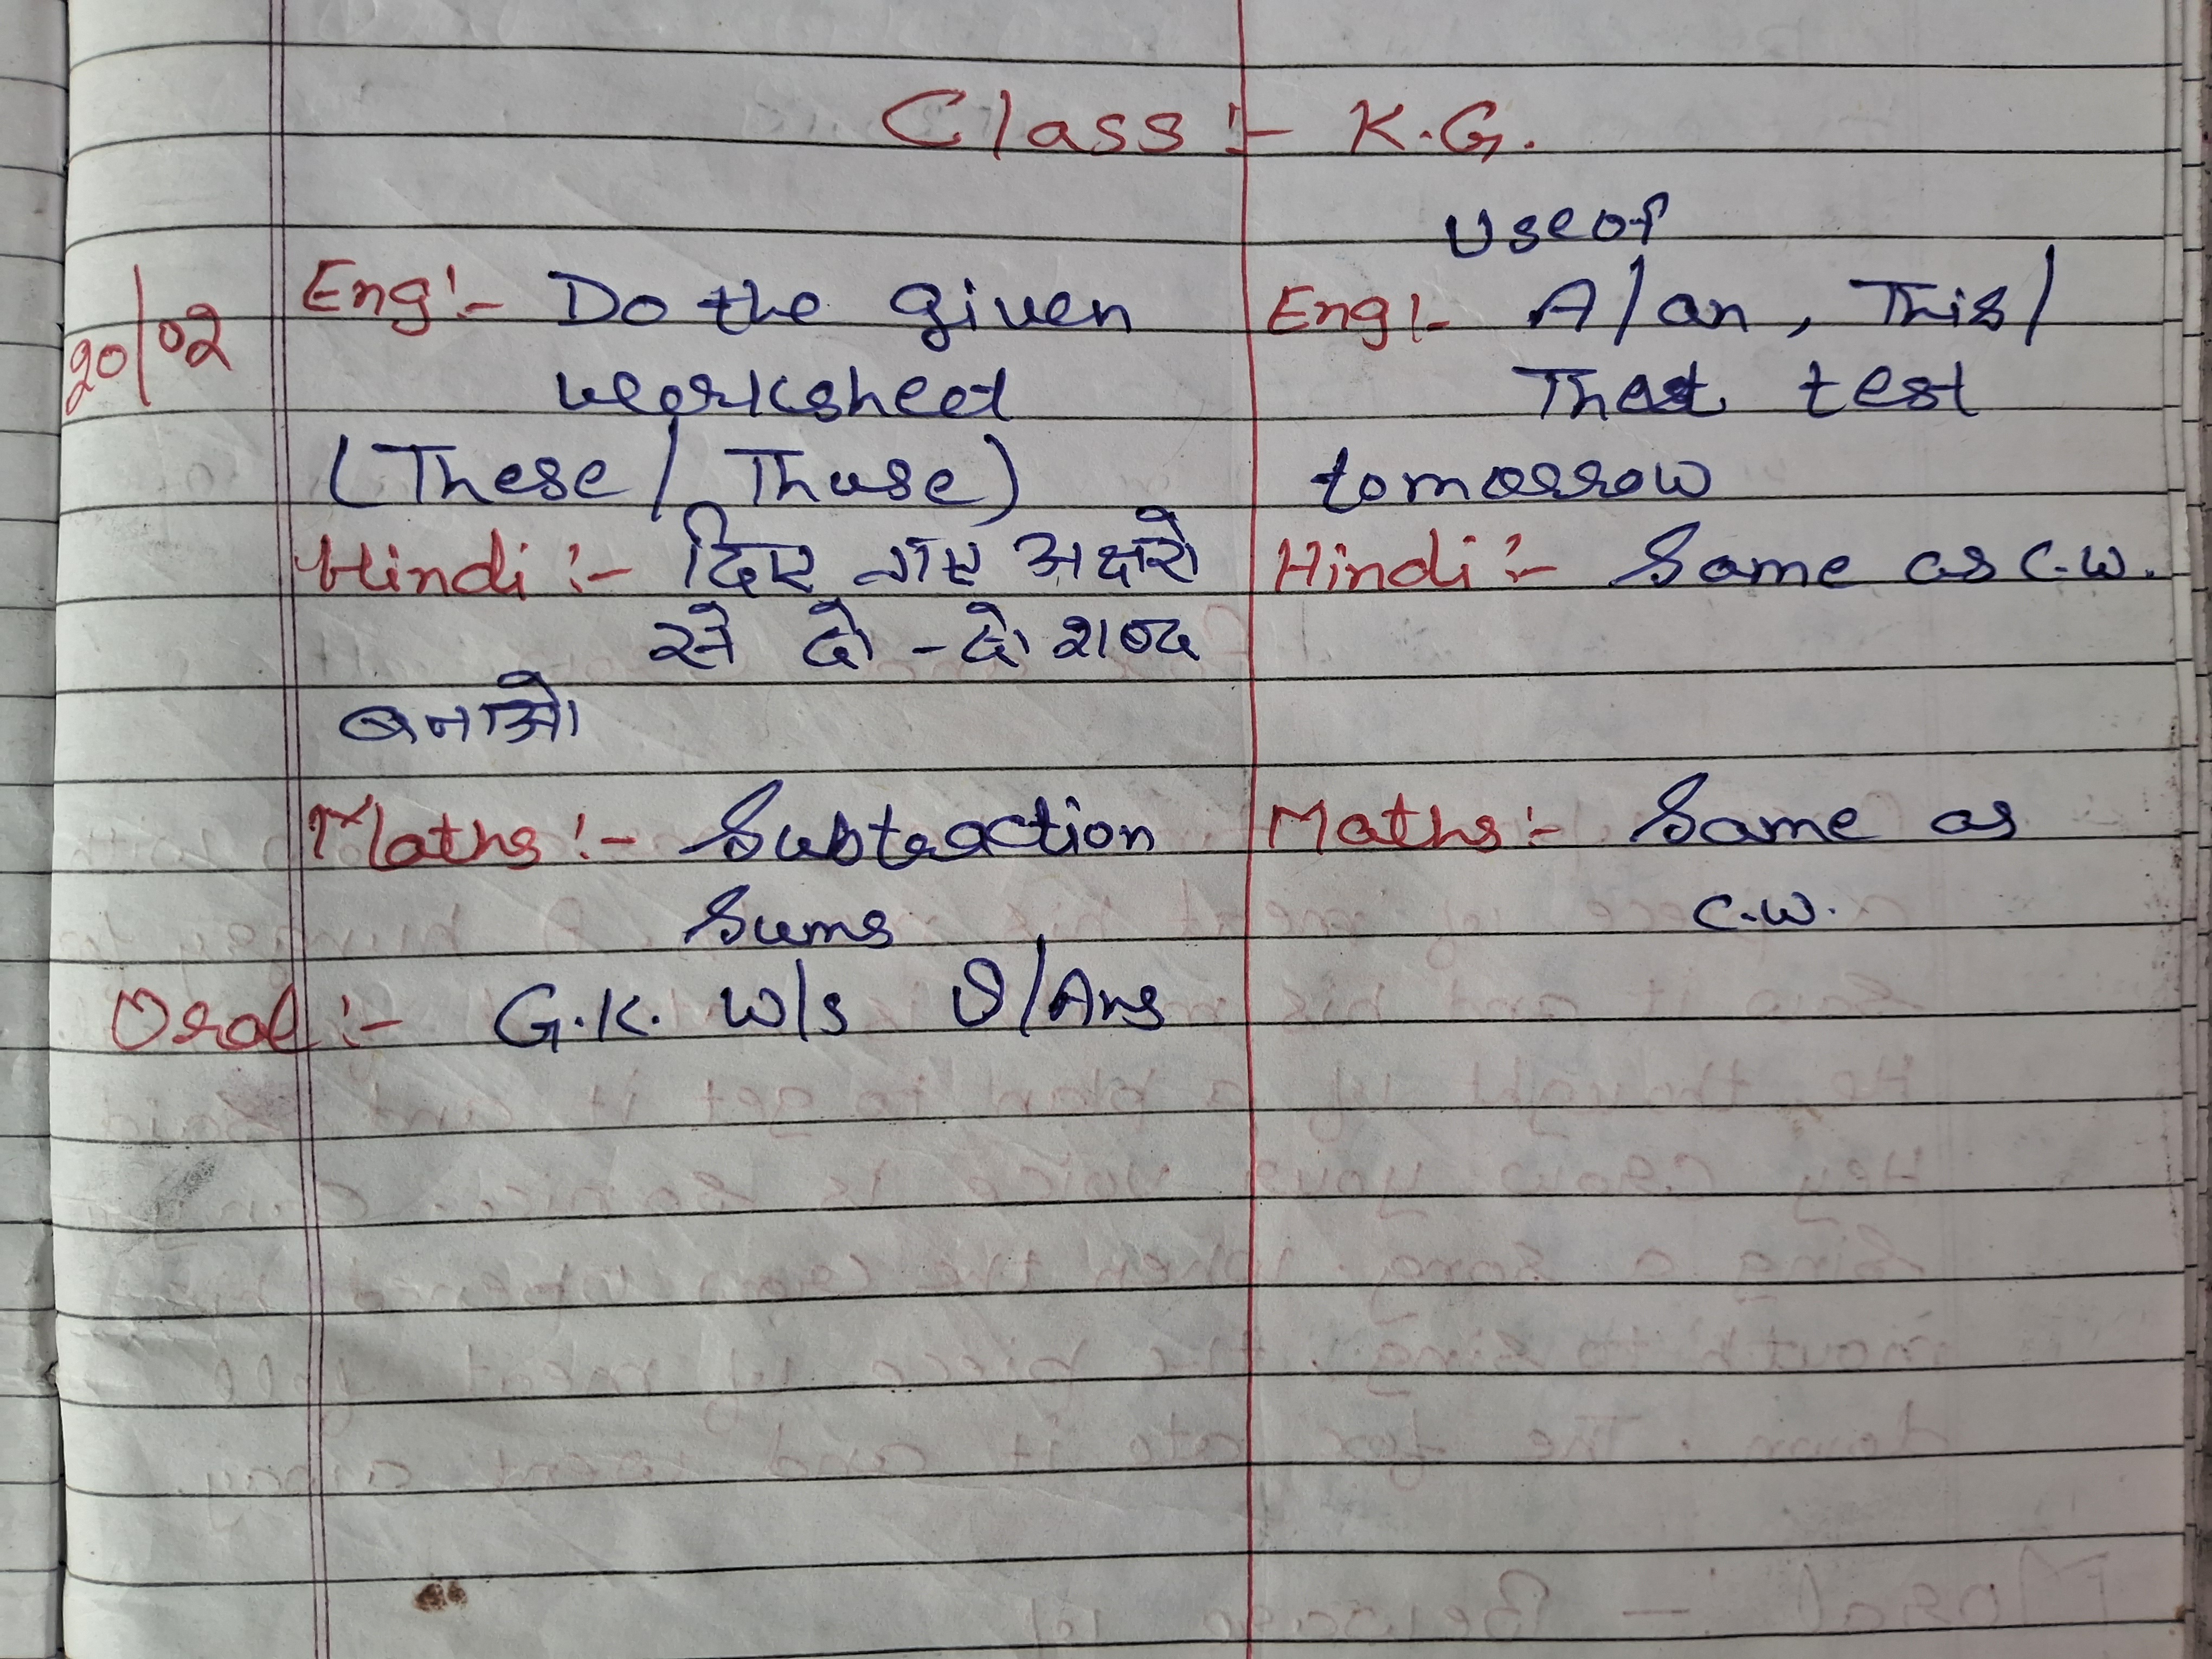 Class :- K.G.
20/02
Eng:- Do the given
worksheet
(These / Those)
Hindi :- दिए गए अक्षरो
से दो - दो शब्द
बनाओ
Maths :- Subtraction
Sums
Oral :- G.K. W/s Q/Ans
Use of
Eng:- A/an, This/
That test
tomorrow
Hindi :- Same as C.W.
Maths :- Same as
C.W.